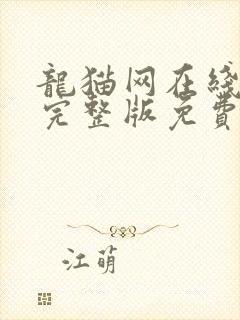 龍猫网在线
完整版免費
江萌